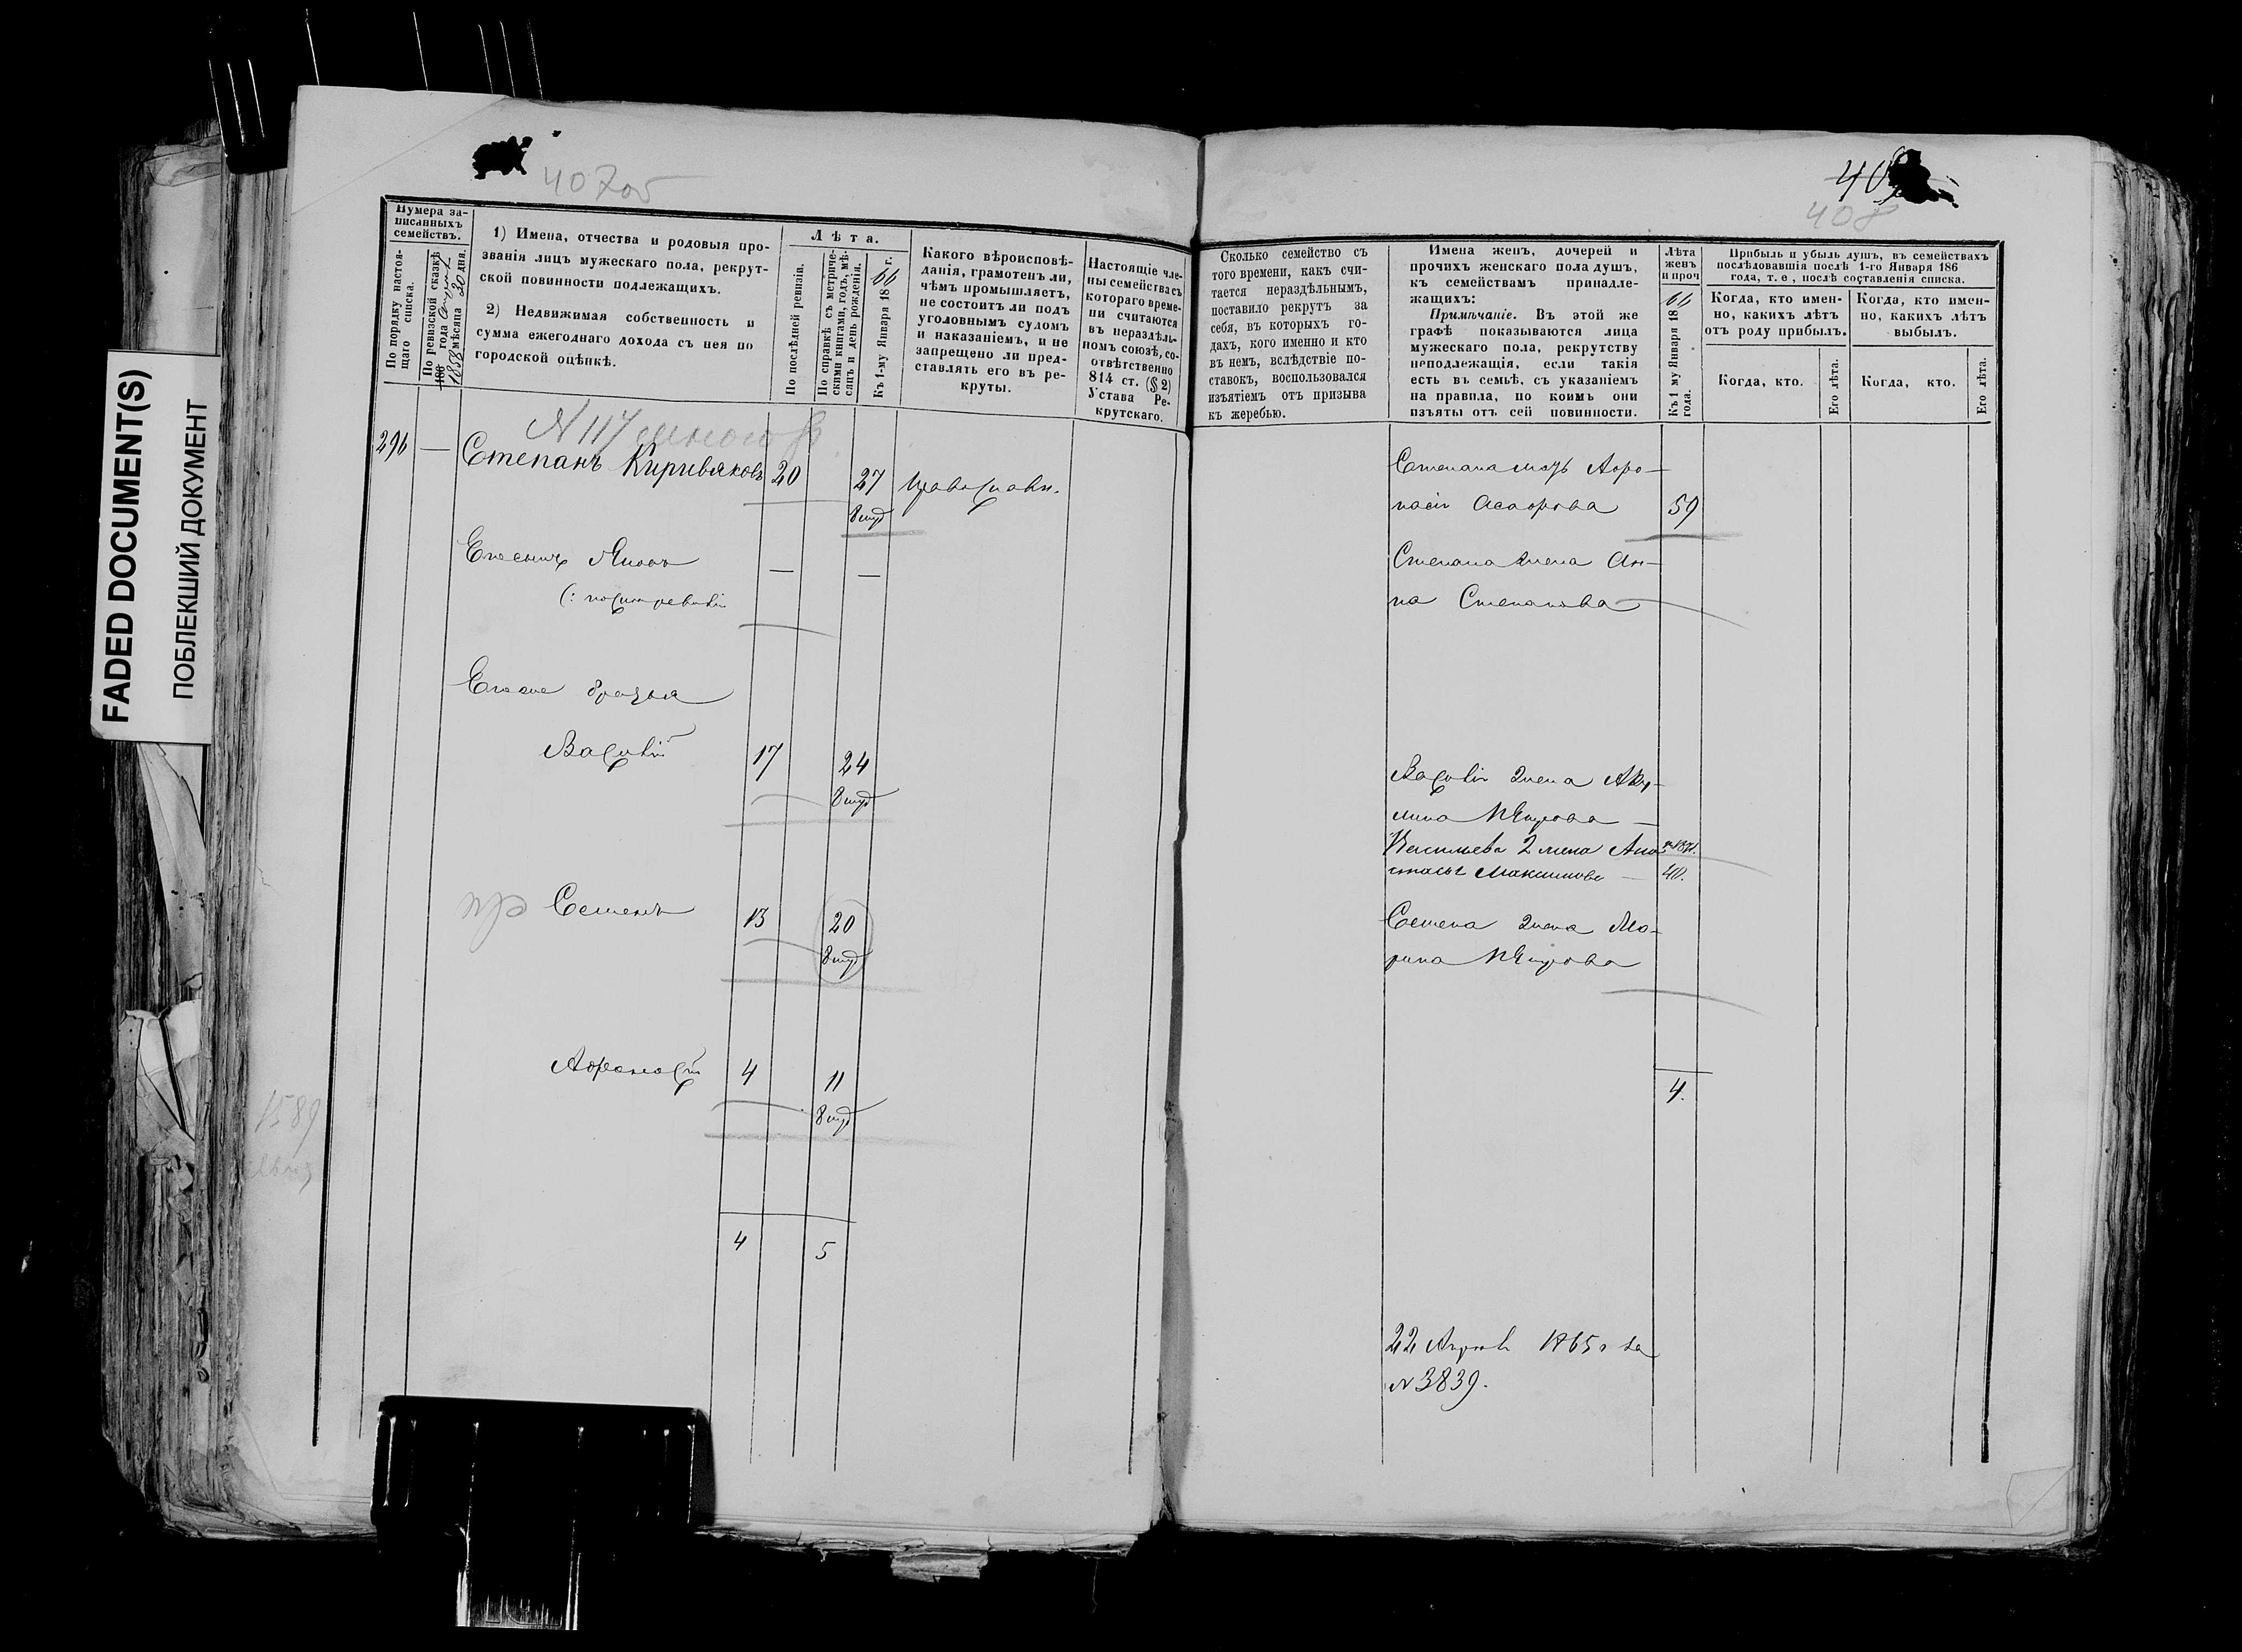 FADED DOCUMENT(S)
ПОБЛЕКШИЙ ДОКУМЕНТ
407об
Нумера за-
писанныхъ
семействъ.
По порядку настоя-
щаго списка.
По ревизской сказкѣ
186 года
1858 мѣсяца 20 дня.
1) Имена, отчества и родовыя про-
званія лицъ мужескаго пола, рекрут-
ской повинности подлежащихъ.
2) Недвижимая собственность и
сумма ежегоднаго дохода съ нея по
городской оцѣнкѣ.
Лѣта.
По послѣдней ревизіи.
По справкѣ съ метриче-
скими книгами, годъ, мѣ-
сяцъ и день рожденія.
Къ 1-му Января 1866 г.
Какого вѣроисповѣ-
данія, грамотенъ ли,
чѣмъ промышляетъ,
не состоитъ ли подъ
уголовнымъ судомъ
и наказаніемъ, и не
запрещено ли пред-
ставлять его въ ре-
круты.
Настоящіе чле-
ны семейства съ
котораго време-
ни считаются
въ нераздѣль-
номъ союзѣ, со-
отвѣтственно
814 ст. (§ 2)
Устава Ре-
крутскаго.
N 117
296 — Степанъ Киривяковъ 20 27 православн.
— —
Егоже братья
Василій 17 24
пр Семенъ 13 20
Афонасій 4 11
1589
4 5
408
Сколько семейство съ
того времени, какъ счи-
тается нераздѣльнымъ,
поставило рекрутъ за
себя, въ которыхъ го-
дахъ, кого именно и кто
въ немъ, вслѣдствіе по-
ставокъ, воспользовался
изъятіемъ отъ призыва
къ жеребью.
Имена женъ, дочерей и
прочихъ женскаго пола душъ,
къ семействамъ принадле-
жащихъ:
Примѣчаніе. Въ этой же
графѣ показываются лица
мужескаго пола, рекрутству
неподлежащія, если такія
есть въ семьѣ, съ указаніемъ
на правила, по коимъ они
изъяты отъ сей повинности.
Лѣта
женъ
и проч
Къ 1 му Января 1866
года.
Прибыль и убыль душъ, въ семействахъ
послѣдовавшія послѣ 1-го Января 186
года, т. е, послѣ составленія списка.
Когда, кто имен-
но, какихъ лѣтъ
отъ роду прибылъ.
Когда, кто имен-
но, какихъ лѣтъ
выбылъ.
Когда, кто.
Его лѣта.
Когда, кто.
Его лѣта.
Степана мать Афо-
насія 59
Степана жена Ан-
на Степанова
Василія жена Аку-
лина Петрова —
Васильева 2 жена Ана-
стасья Максимова — 40.
Семена жена Ма-
рина Петрова
4.
22 Апрѣля 1865 г за
N 3839.